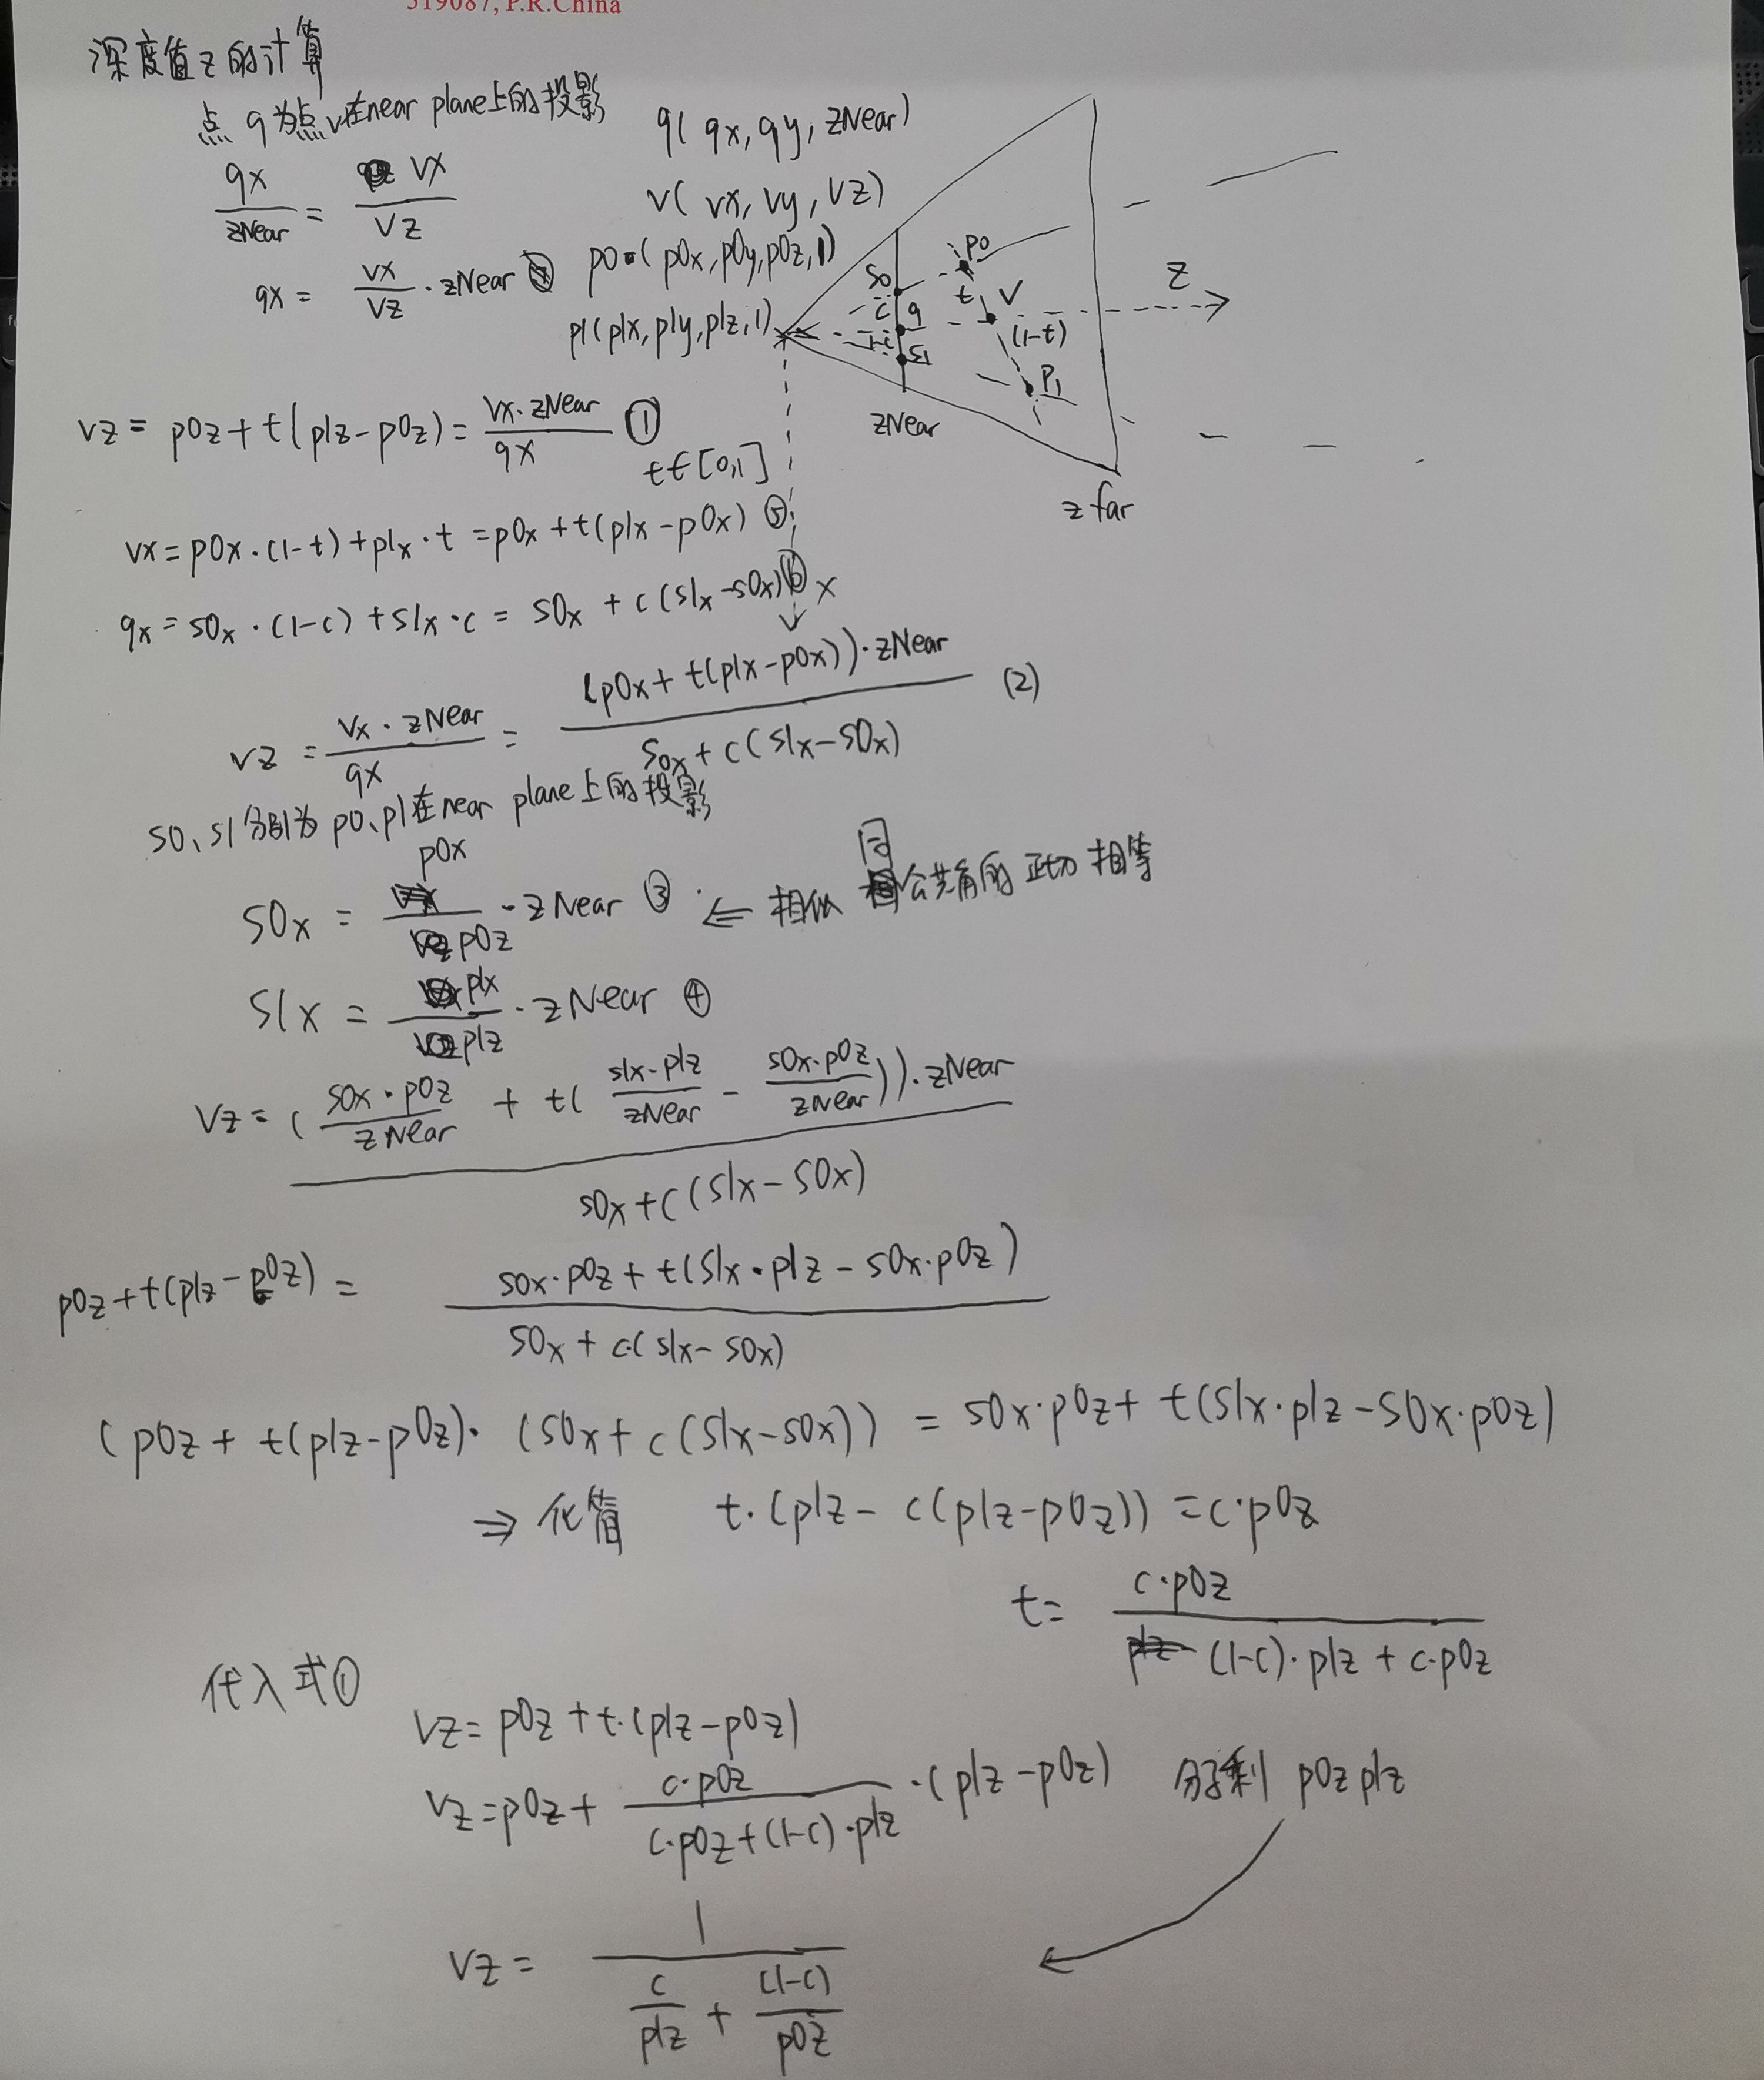 519087, P.R.China
深度值z的计算
点q为点v在near plane上的投影
q(qx, qy, zNear)
qx/zNear = vx/vz
v(vx, vy, vz)
qx = vx/vz · zNear
p0=(p0x, p0y, p0z, 1)
p1(p1x, p1y, p1z, 1)
p0
s0
t
V
z
c
q
(1-t)
1-c
s1
P1
zNear
z far
vz = p0z + t(p1z - p0z) = vx·zNear/qx ①
t∈[0,1]
vx = p0x·(1-t) + p1x·t = p0x + t(p1x - p0x) ⑤
qx = s0x·(1-c) + s1x·c = s0x + c(s1x - s0x) ⑥
x
vz = vx·zNear/qx = (p0x + t(p1x - p0x))·zNear / s0x + c(s1x - s0x) (2)
s0、s1分别为p0、p1在near plane上的投影
s0x = p0x/p0z · zNear ③ ⇐ 相似 同公共角的正切相等
s1x = p1x/p1z · zNear ④
vz = (s0x·p0z/zNear + t(s1x·p1z/zNear - s0x·p0z/zNear))·zNear / s0x + c(s1x - s0x)
p0z + t(p1z - p0z) = s0x·p0z + t(s1x·p1z - s0x·p0z) / s0x + c·(s1x - s0x)
(p0z + t(p1z - p0z)·(s0x + c(s1x - s0x)) = s0x·p0z + t(s1x·p1z - s0x·p0z)
⇒ 化简 t·(p1z - c(p1z - p0z)) = c·p0z
t = c·p0z / (1-c)·p1z + c·p0z
代入式①
vz = p0z + t·(p1z - p0z)
vz = p0z + c·p0z / c·p0z + (1-c)·p1z ·(p1z - p0z) 分子剩 p0z p1z
vz = 1 / c/p1z + (1-c)/p0z